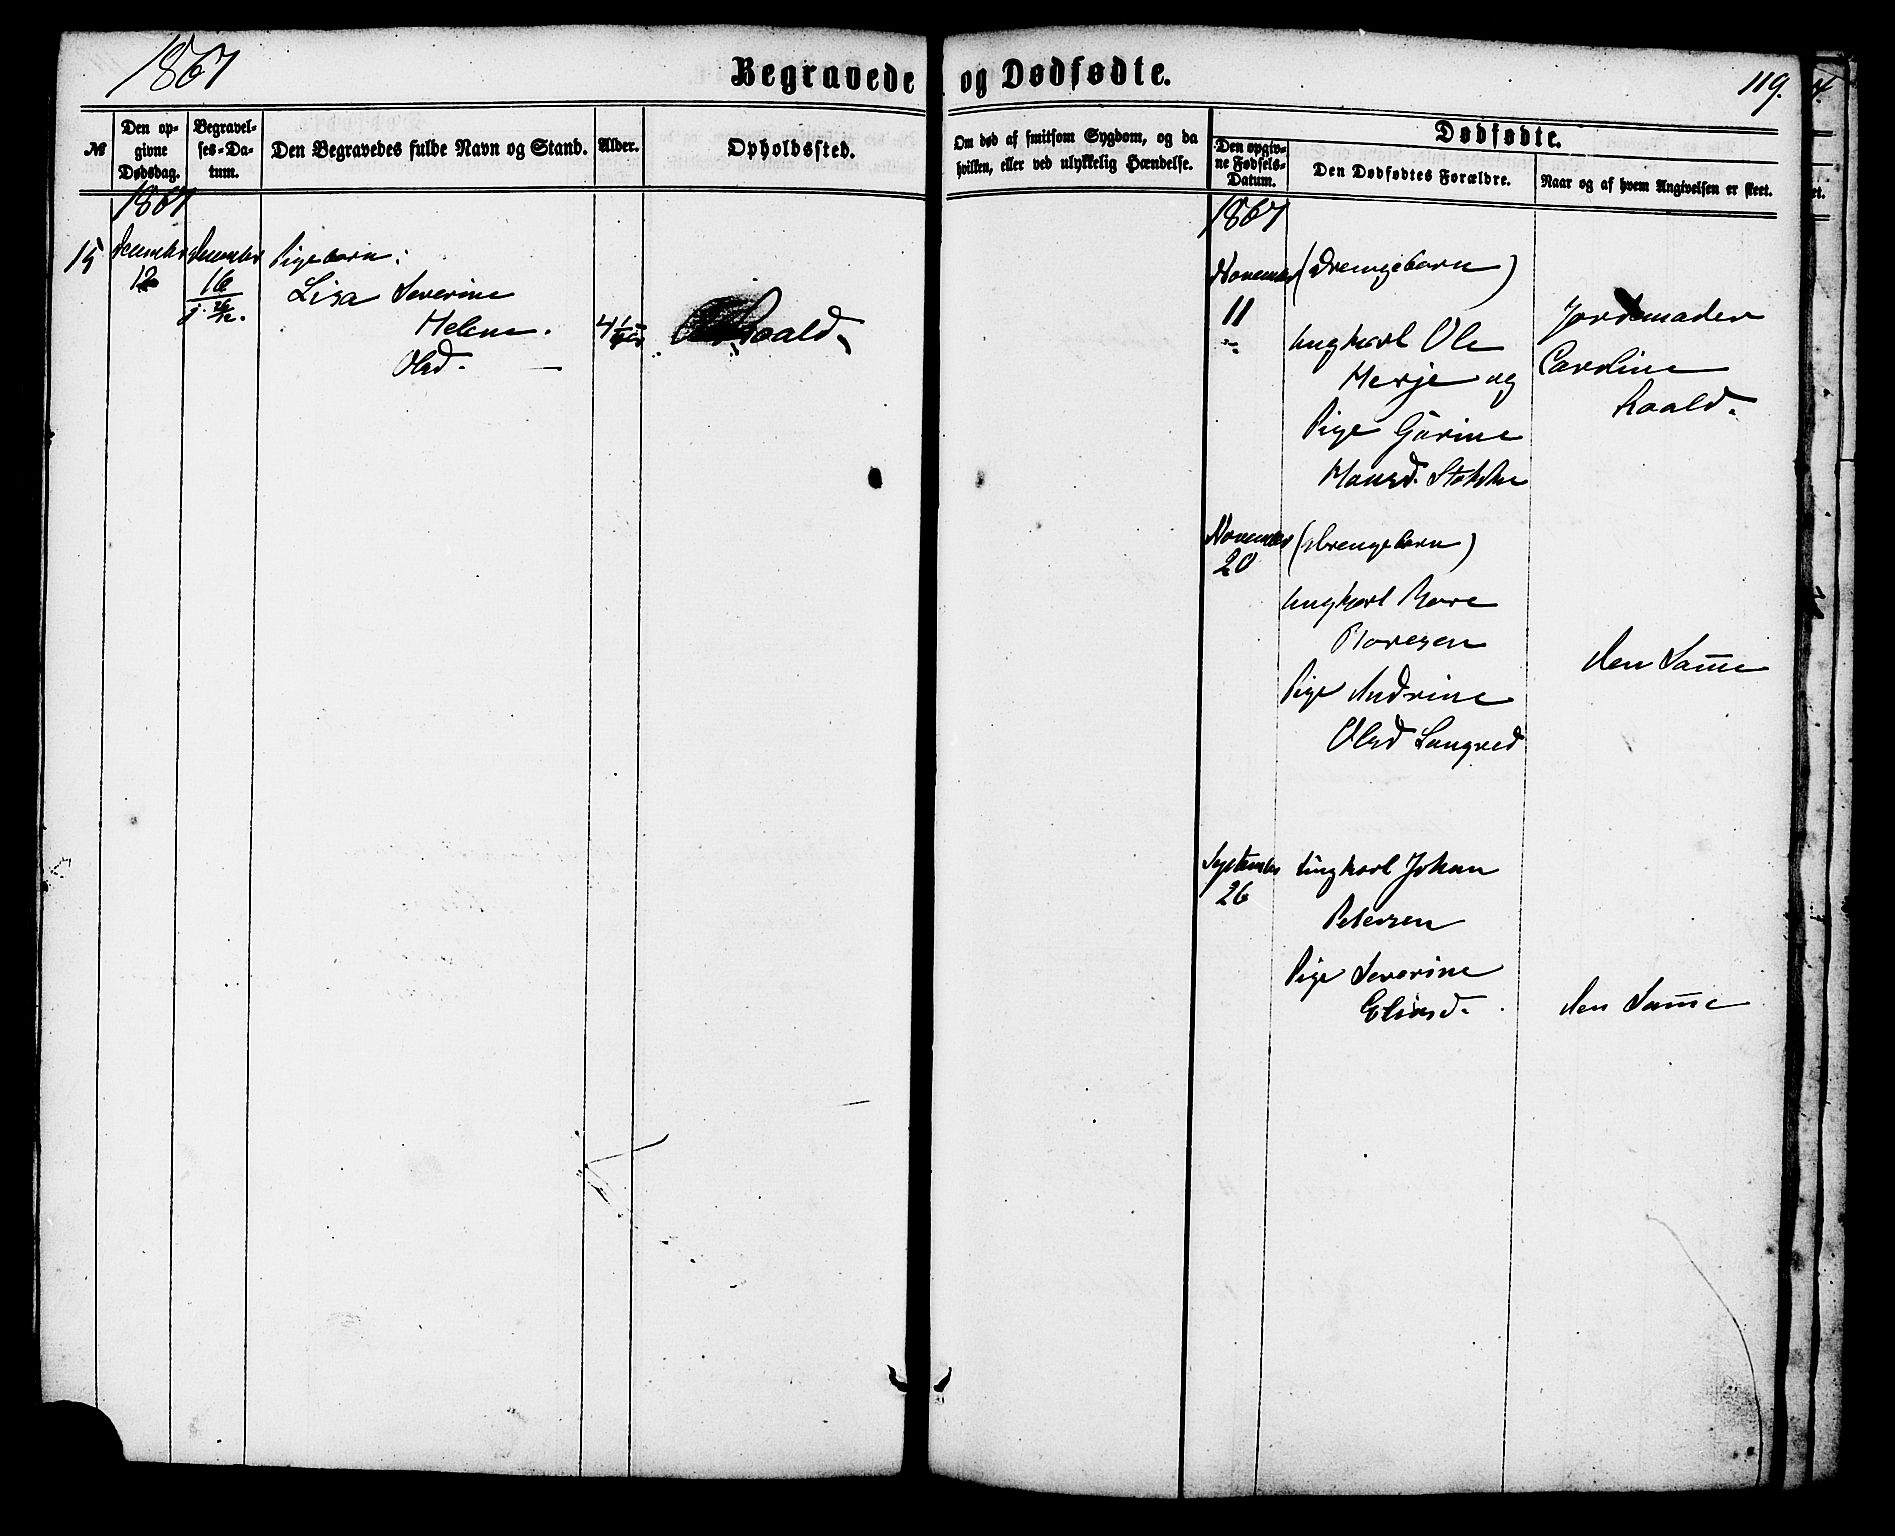 1867
Begravede og Dødfødte.
119.
№
Den opgivne Dødsdag.
Begravelses-Datum.
Den Begravedes fulde Navn og Stand.
Alder.
Opholdssted.
Om død af smitsom Sygdom, og da hvilken, eller ved ulykkelig Hændelse.
Dødfødte.
Den opgivne Fødsels-Datum.
Den Dødfødtes Forældre.
Naar og af hvem Angivelsen er skeet.
1867
15
December
12
December
16
Pigebarn:
Lisa Severine
Helene.
Olsd.
Roald.
1867
November
11
(Drengebarn)
Ungkarl Ole
Herje og
Pige Gurine
Hansd. Stokke
Jordemoder
Caroline
Roald.
November
20
(Drengebarn)
Ungkarl
Pige Andrine
Olsd
Den Samme
September
26
Ungkarl Johan
Petersen
Pige Severine
Eliasd.
Den Samme